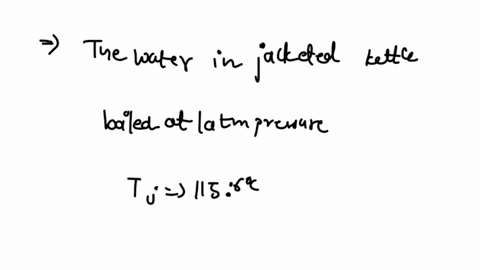 ⇒ The water in jacketed kettle
boiled at 1 atm pressure
Tj ⇒ 115.